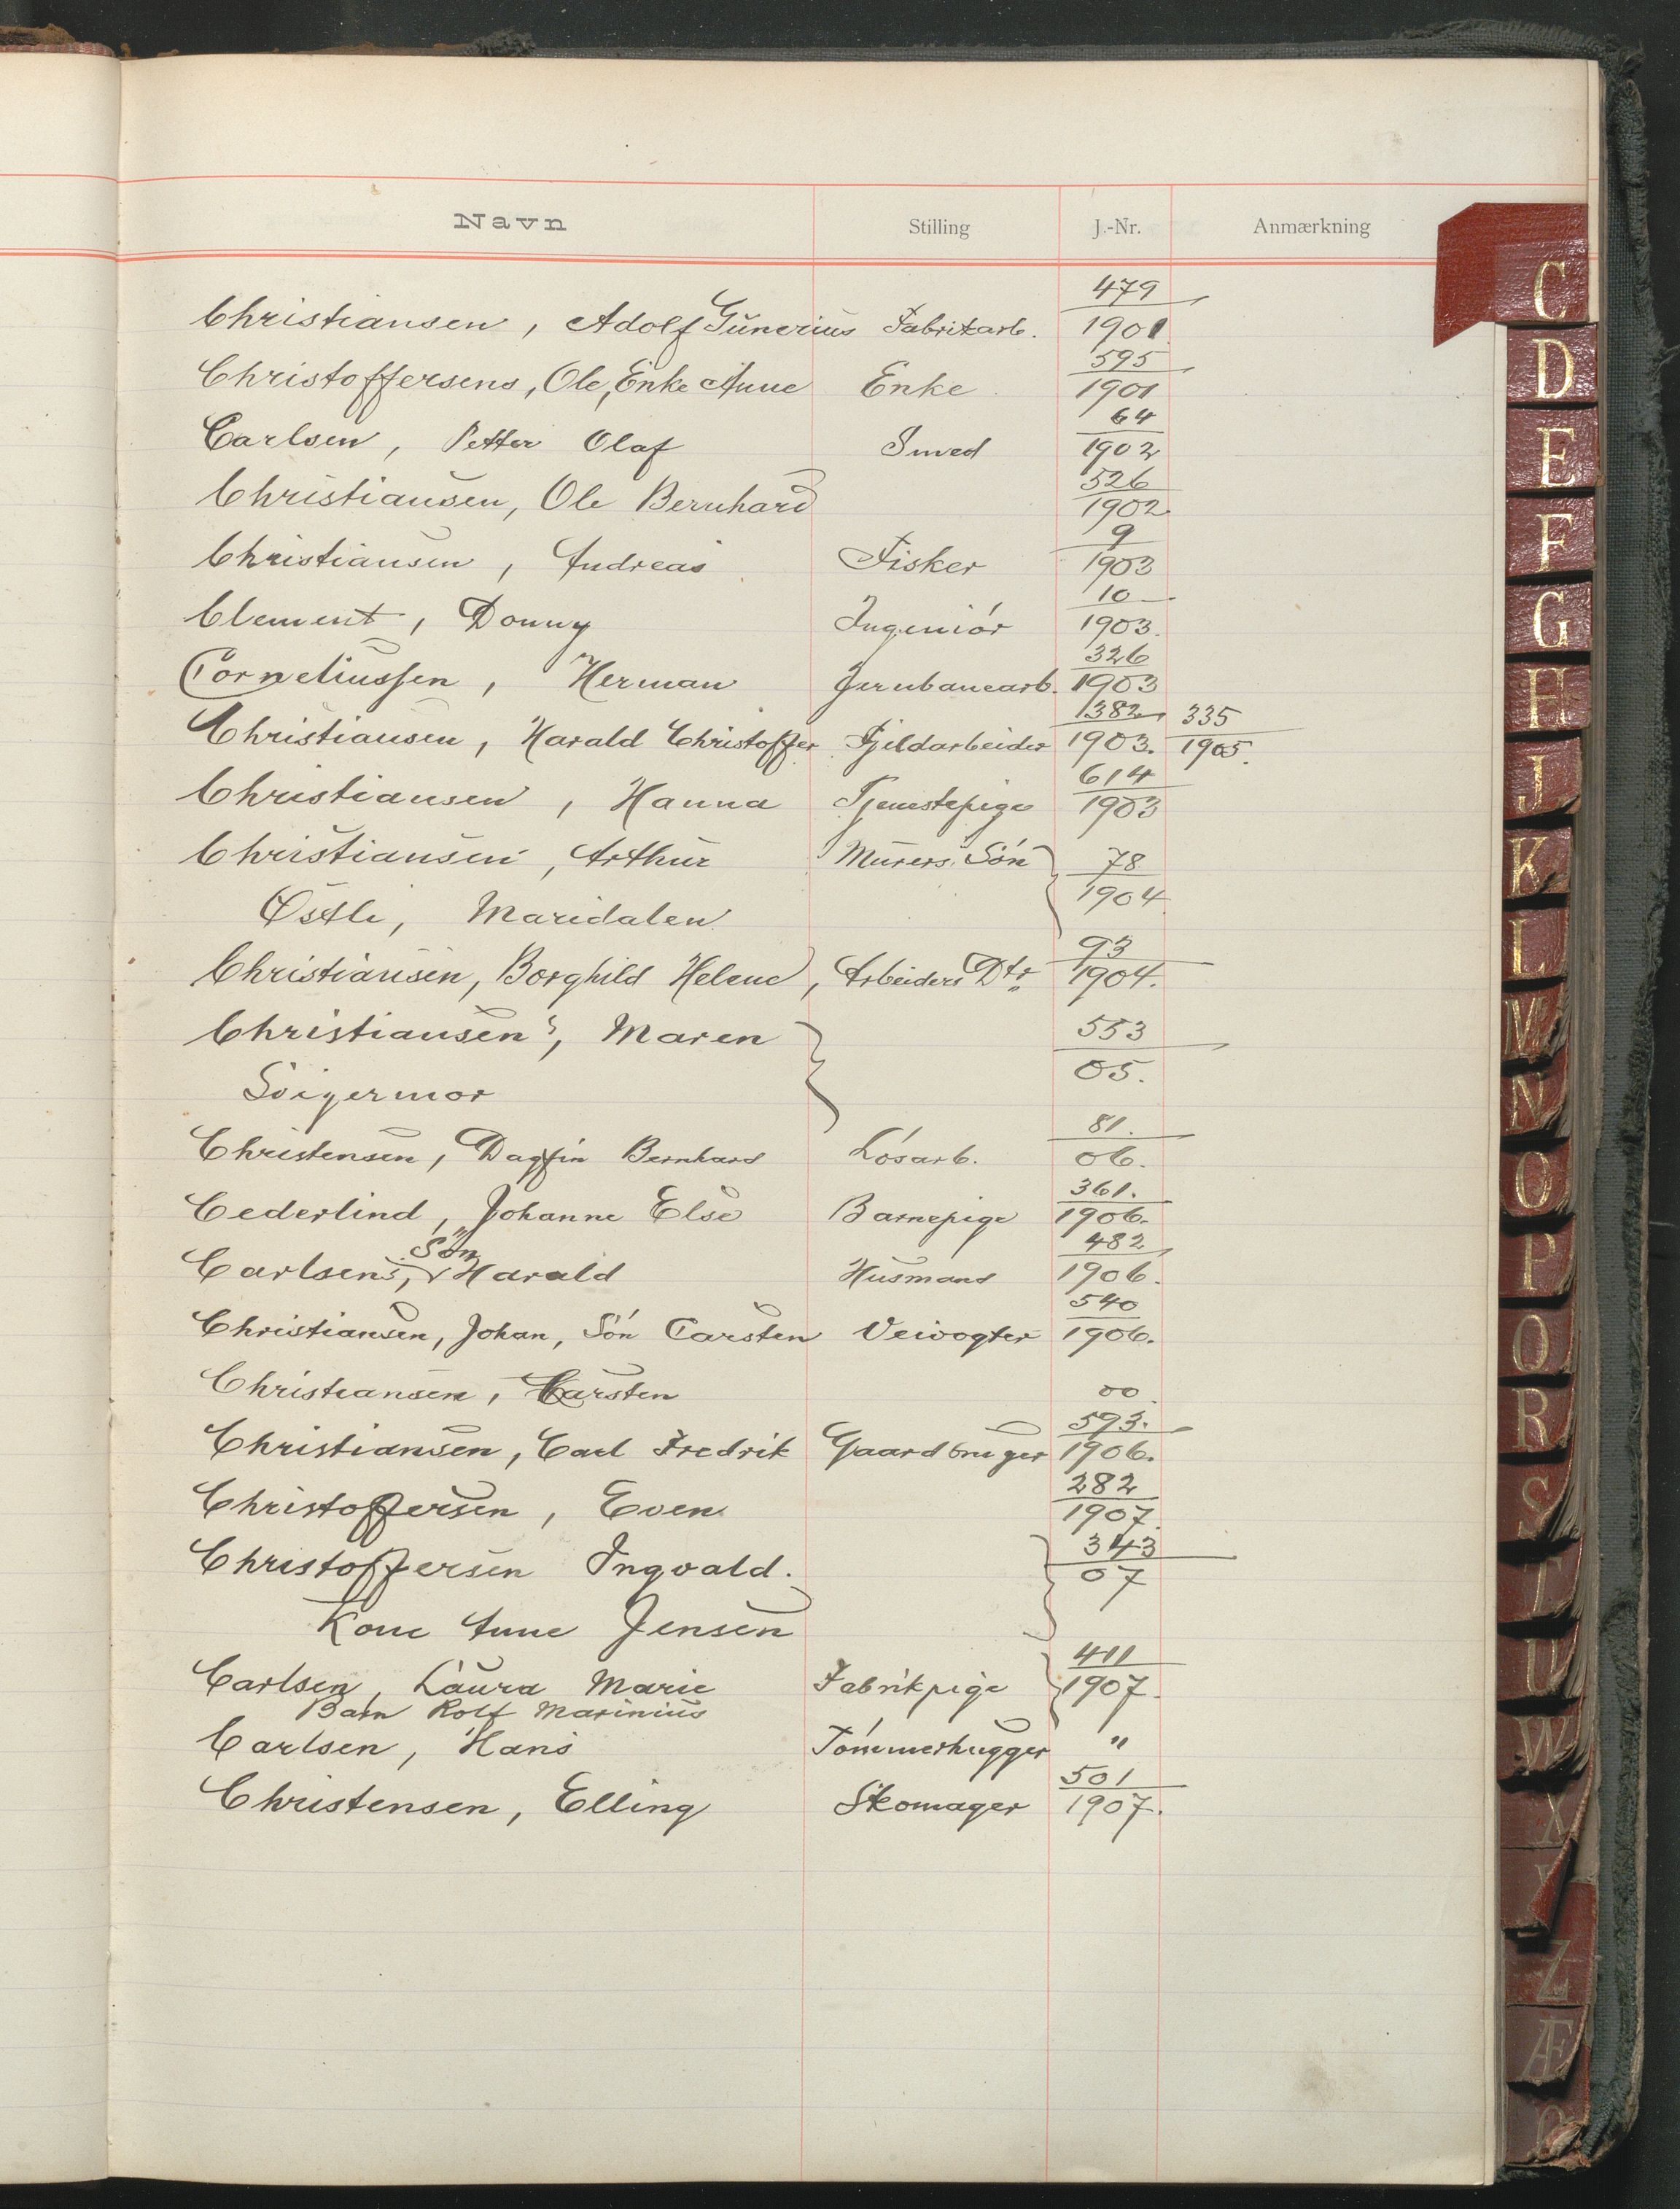 Navn Stilling J.-Nr. Anmærkning
479
Christiansen, Adolf Gunerius Fabrikarb. 1901
595
Christoffersens, Ole, Enke Anne Enke 1901
64
Carlsen, Petter Olaf Smed 1902
526
Christiansen, Ole Bernhard 1902
9
Christiansen, Andreas Fisker 1903
10
Clement, Donny Ingeniór 1903.
326
Corneliussen, Herman Jernbanearb. 1903
1382 335
Christiansen, Harald Christoffer Fjeldarbeider 1903. 1905.
614
Christiansen, Hanna Tjenestepige 1903
Christiansen, Arthur Murers Són 78
Østli, Maridalen 1904
93
Christiansen, Borghild Helene, Arbeiders Dtr. 1904.
Christiansen's, Maren 553
Svigermor 05.
81.
Christensen, Dagfin Bernhard Lósarb. 06.
361.
Cederlind, Johanne Else Barnepige 1906.
Són 482
Carlsens, Harald Husmand 1906.
540
Christiansen, Johan, Són Carsten Veivogter 1906.
Christiansen, Carsten oo
593.
Christiansen, Carl Fredrik Gaardbruger 1906.
282
Christoffersen, Even 1907.
343
Christoffersen Ingvald. 07
Kone Anne Jensen
411
Carlsen, Laura Marie Fabrikpige 1907.
Barn Rolf Marinius
Carlsen, Hans Tómmerhugger "
501
Christensen, Elling Skomager 1907.
C
D
E
F
G
H
J
K
L
M
N
O
P
Q
R
S
T
U
W
X
Y
Z
Æ
Ø